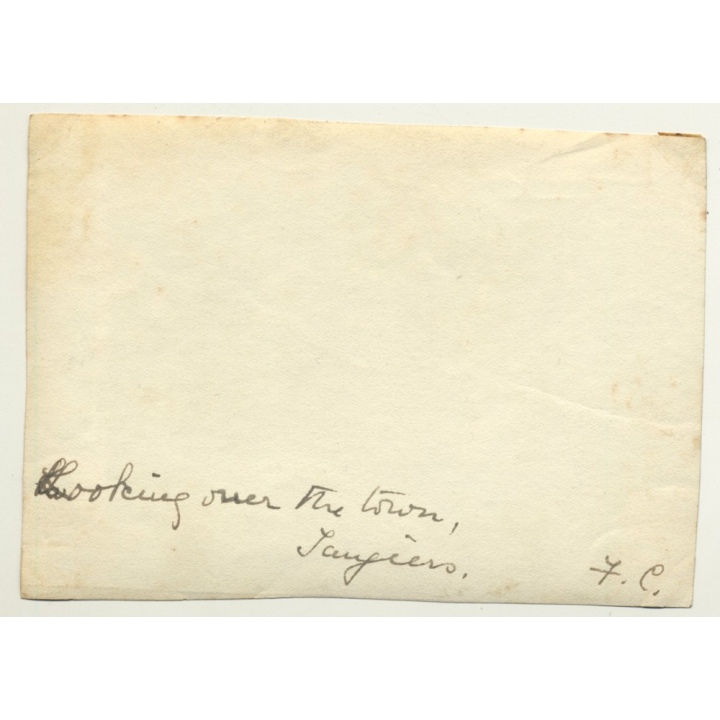 Looking over the town,
Tangiers.
F. C.